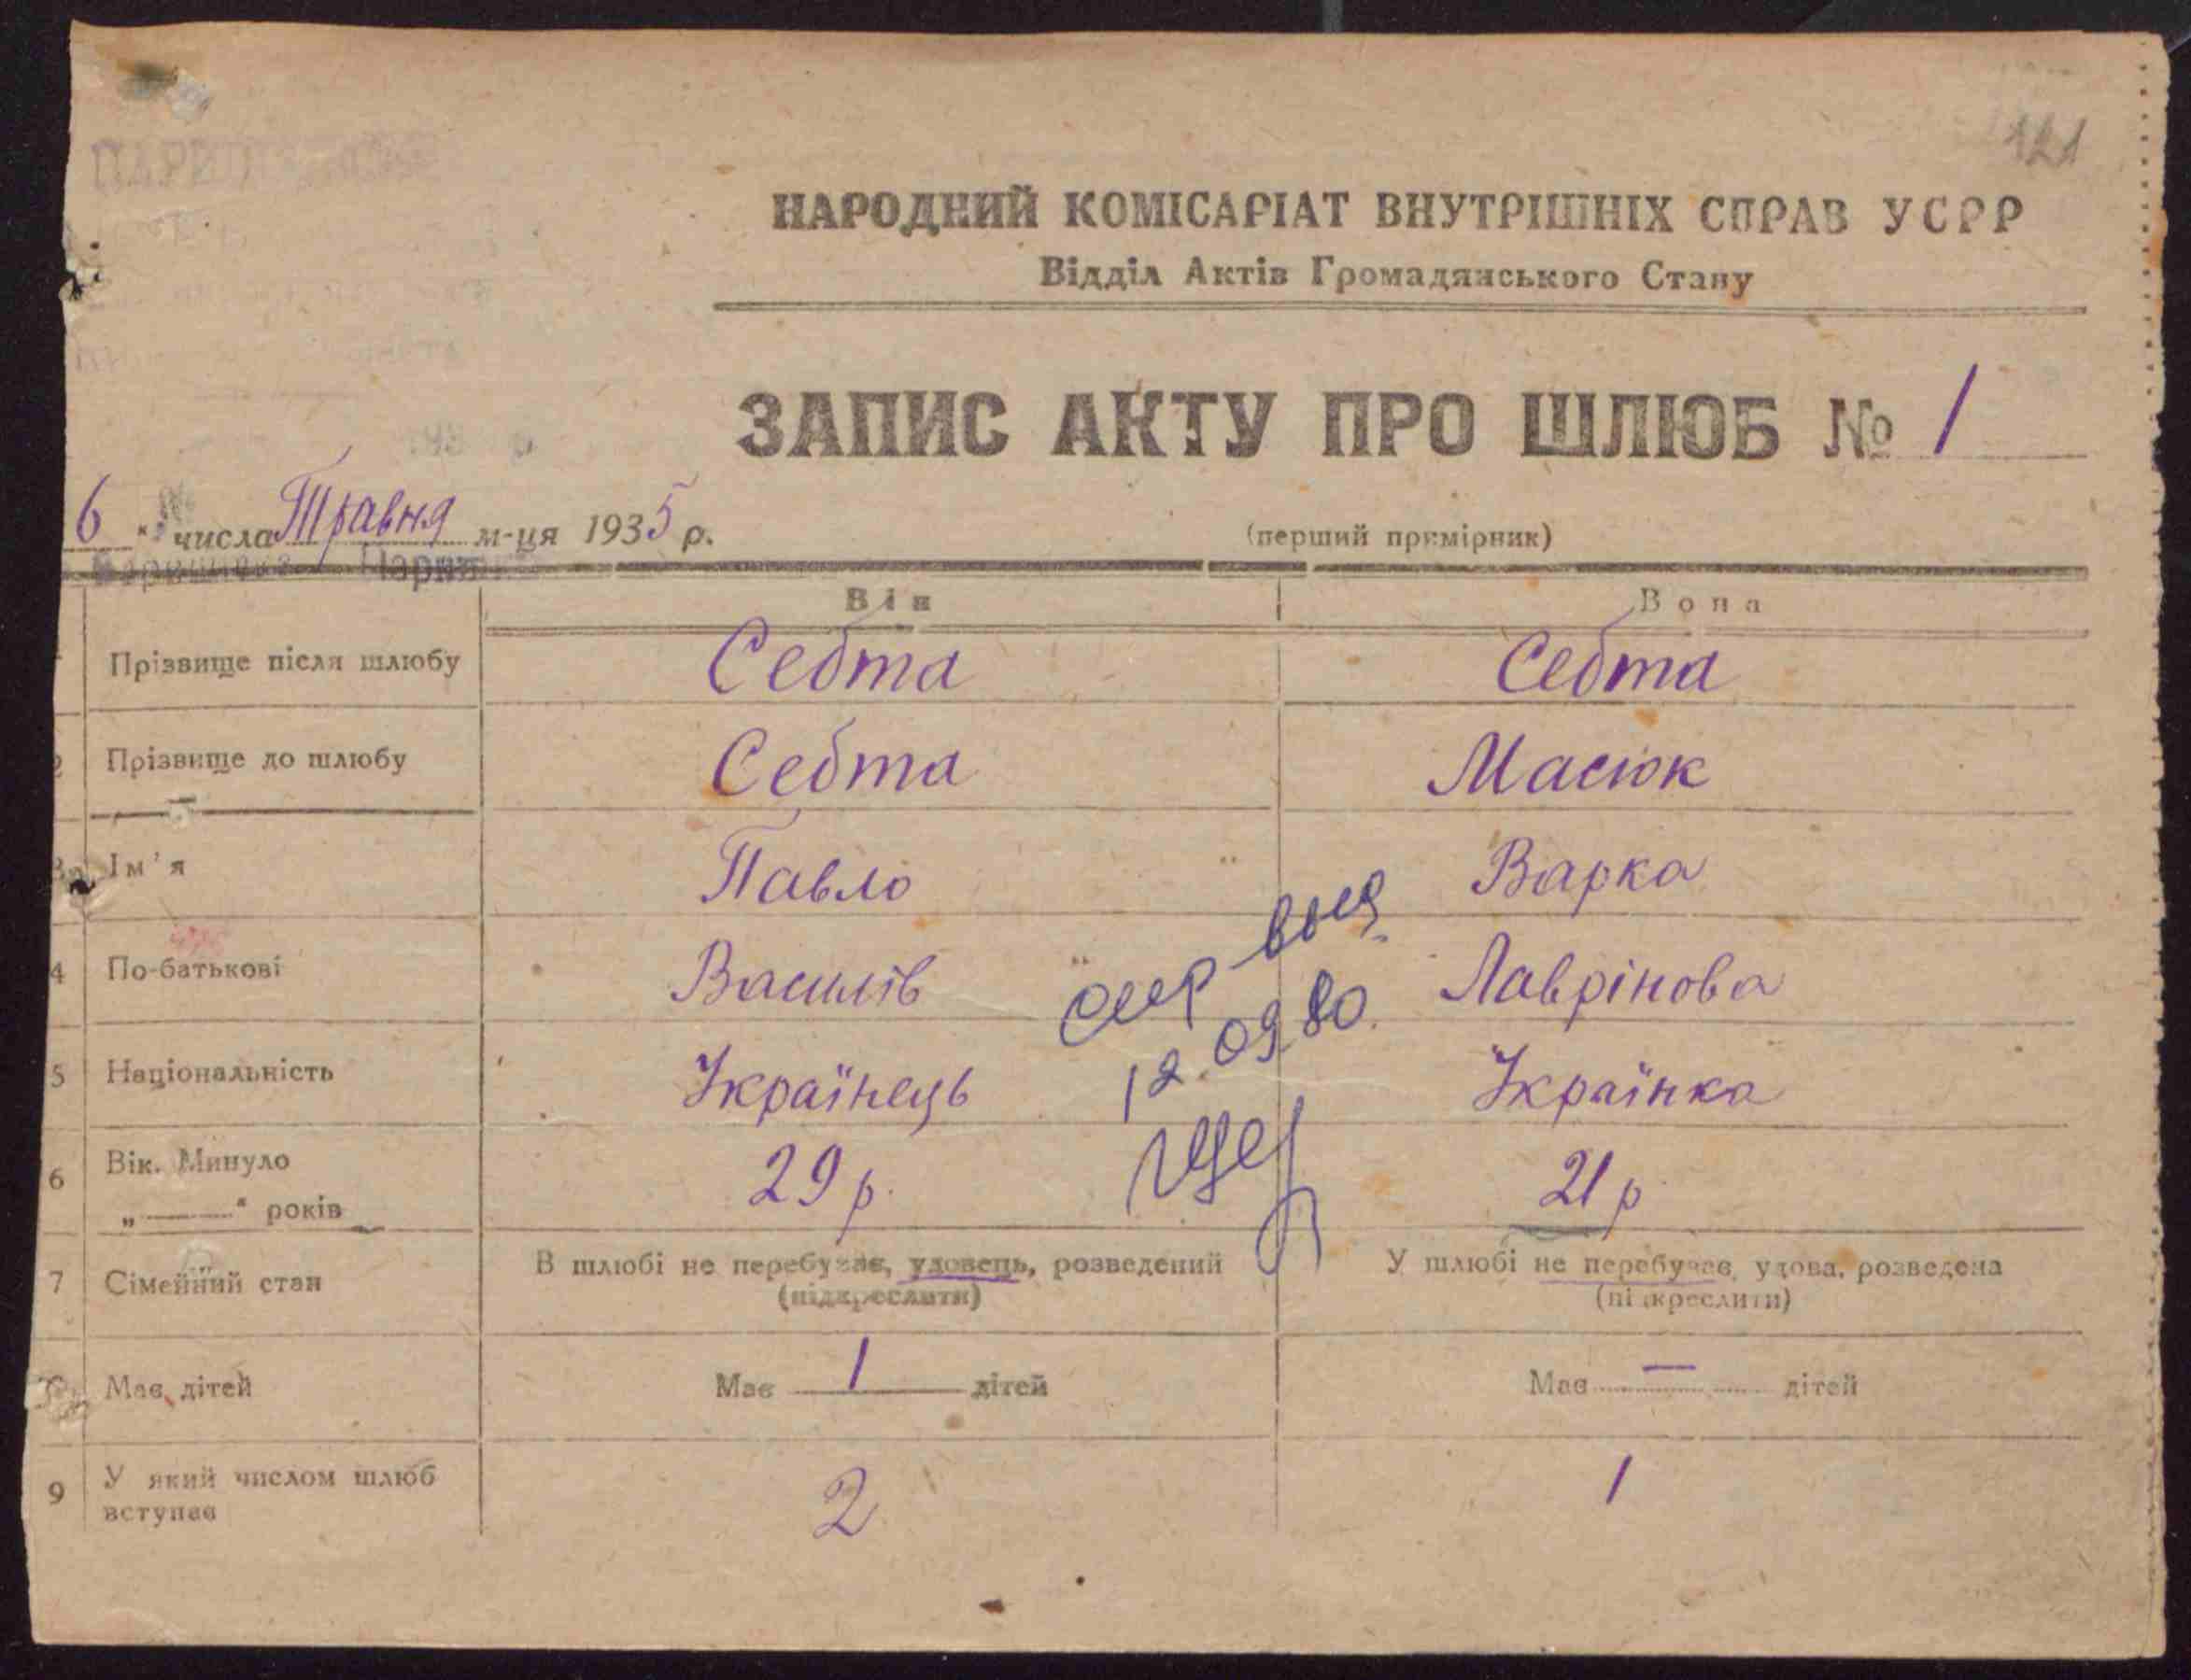 121
НАРОДНИЙ КОМІСАРІАТ ВНУТРІШНІХ СПРАВ УСРР
Відділ Актів Громадянського Стану
ЗАПИС АКТУ ПРО ШЛЮБ № 1
6 " числа Травня м-ця 1935 р.
(перший примірник)
Він Вона
Прізвище після шлюбу Себта Себта
2 Прізвище до шлюбу Себта Масюк
3 Ім'я Павло Варка
4 По-батькові Василів Лаврінова
выд
12.09.80.
5 Національність Українець Українка
6 Вік. Минуло 29 р. 21 р
„ — " років
7 Сімейний стан В шлюбі не перебуває, удовець, розведений У шлюбі не перебуває, удова, розведена
(підкреслити) (підкреслити)
Має дітей Має 1 дітей Має — дітей
9 У який числом шлюб 2 1
вступає